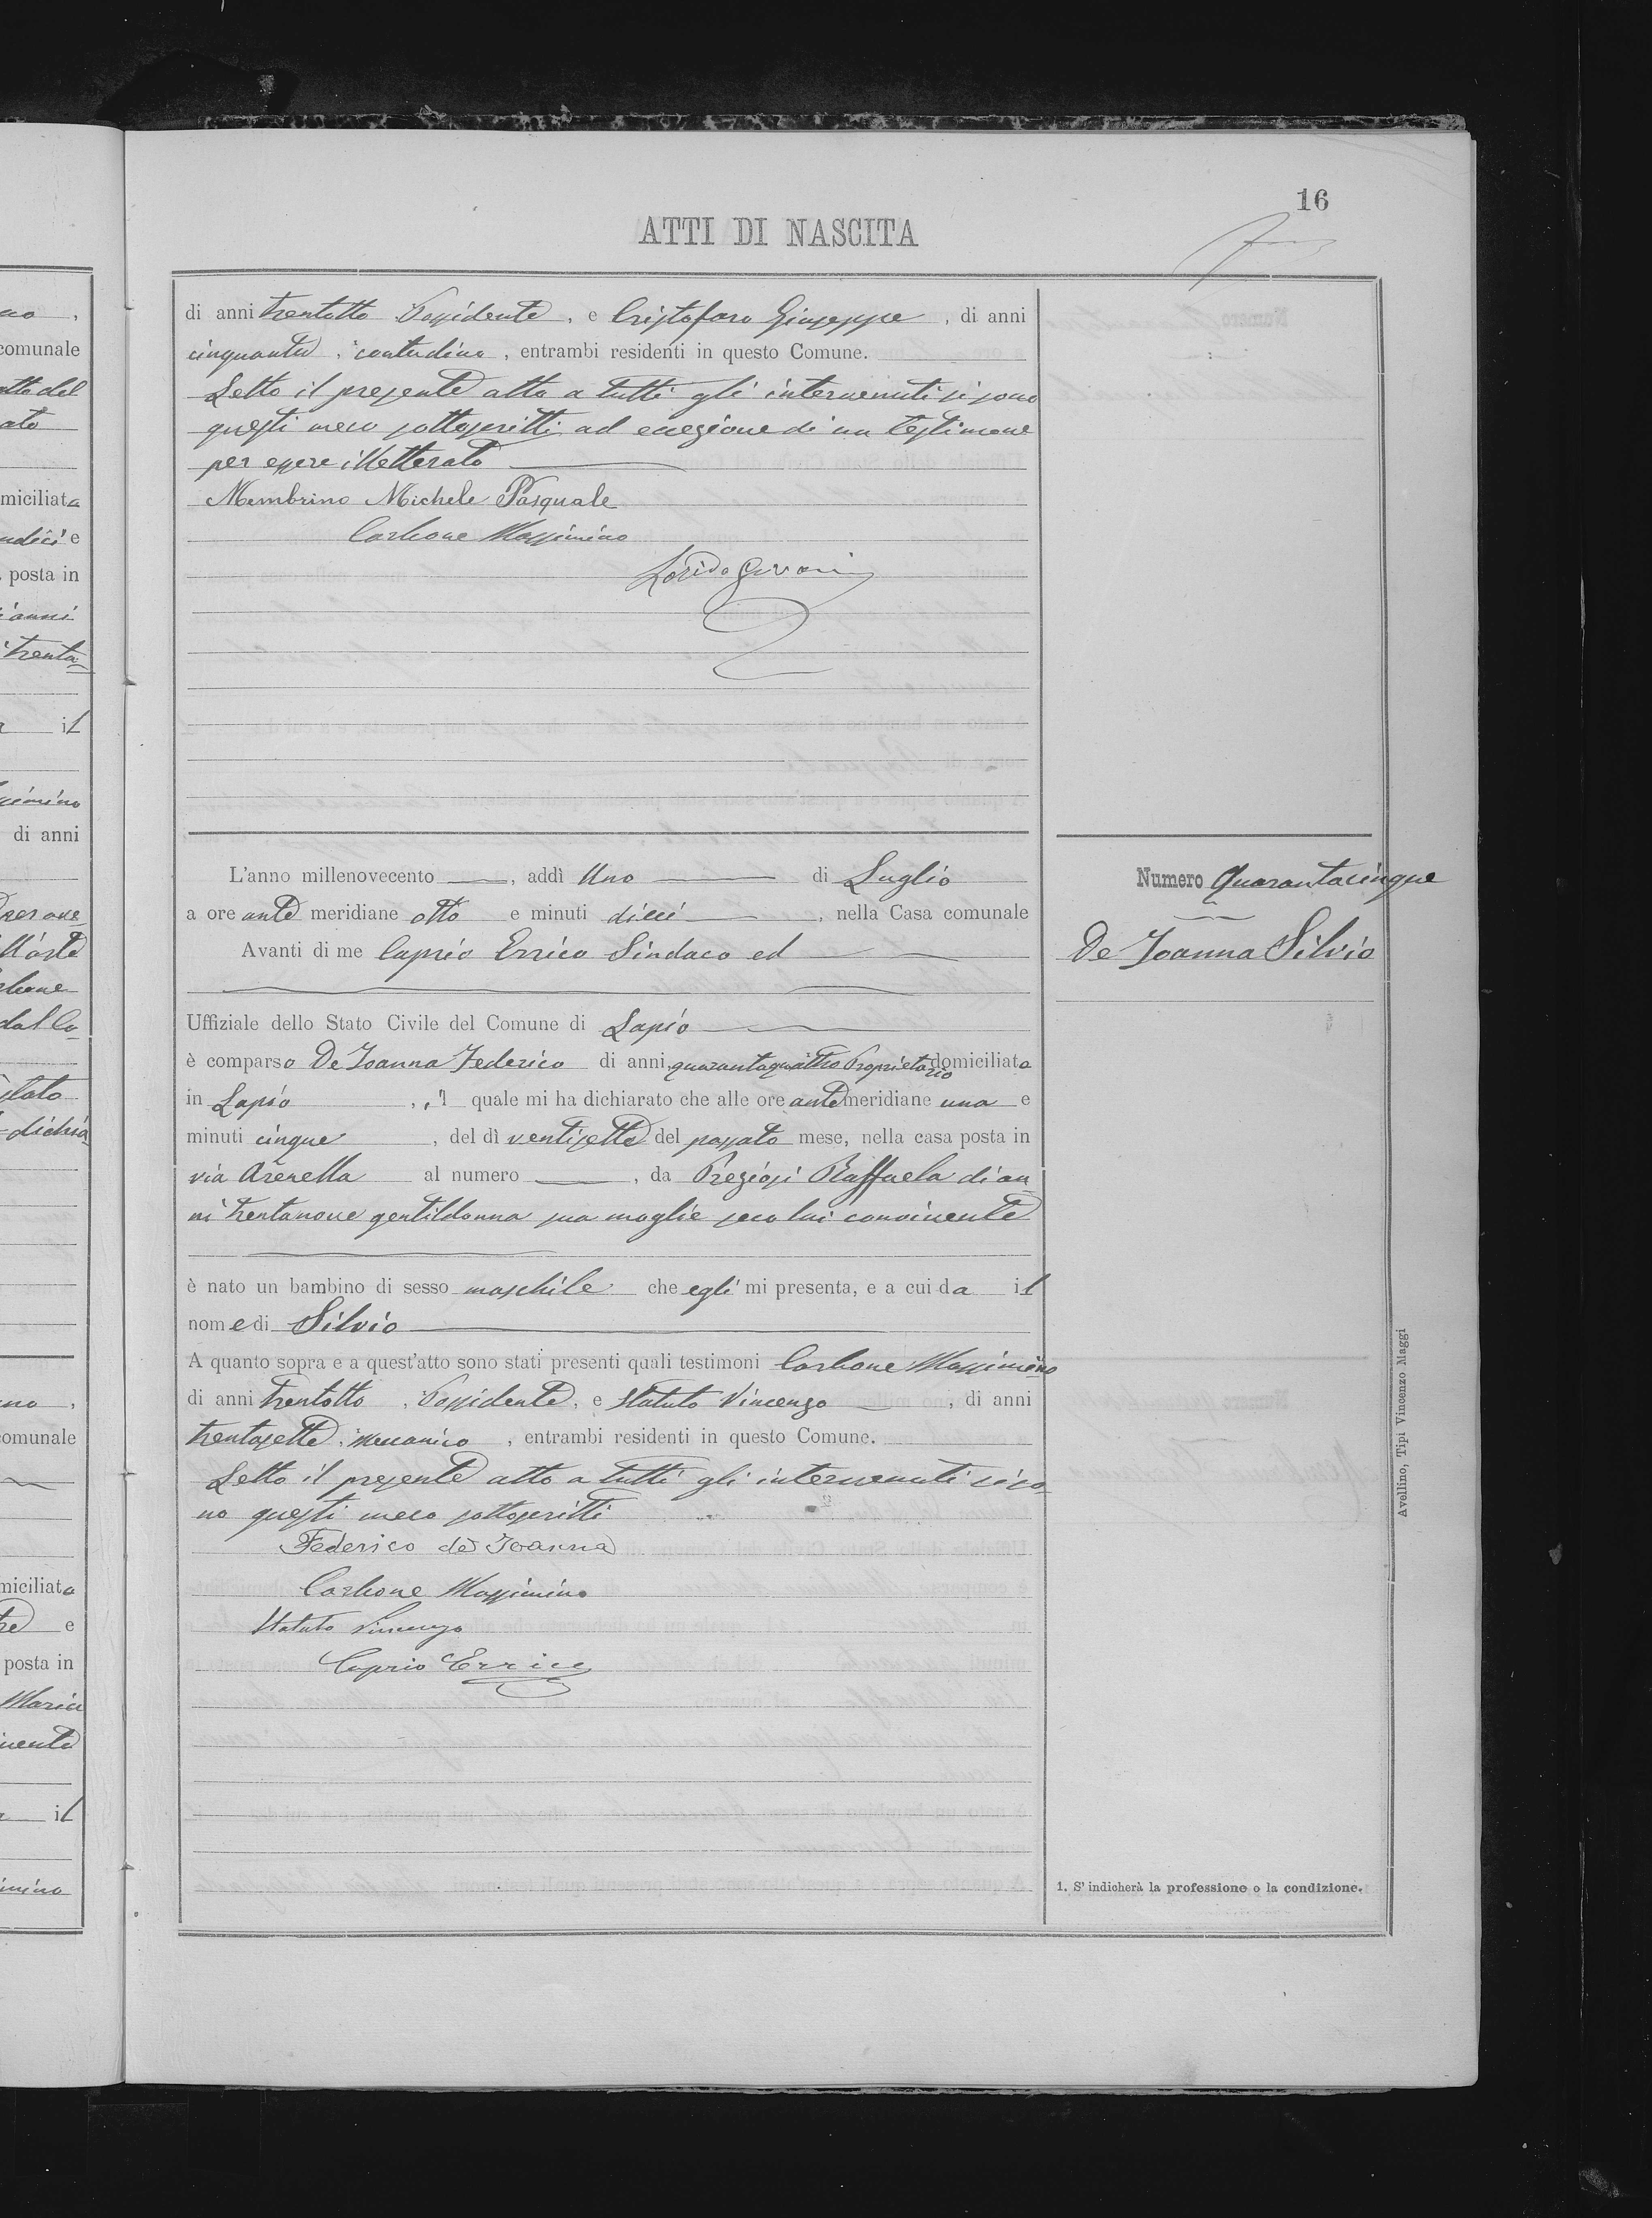 16
ATTI DI NASCITA
di anni trentotto Possidente, e Cristofaro Giuseppe, di anni
cinquanta, contadino, entrambi residenti in questo Comune.
Letto il presente atto a tutti gli intervenuti si sono
questi meco sottoscritti ad eccezione di un testimone
per essere illetterato
Membrino Michele Pasquale
Carbone Massimino
L'anno millenovecento, addì Uno di Luglio
a ore ante meridiane otto e minuti dieci, nella Casa comunale
Avanti di me Caprio Errico Sindaco ed
Uffiziale dello Stato Civile del Comune di Lapio
è comparso De Joanna Federico di anni quarantaquattro Proprietario domiciliato
in Lapio, il quale mi ha dichiarato che alle ore ante meridiane una e
minuti cinque, del dì ventisette del passato mese, nella casa posta in
via Arenella al numero, da Preziosi Raffaela di an
ni trentanove gentildonna sua moglie seco lui convivente
è nato un bambino di sesso maschile che egli mi presenta, e a cui da il
nome di Silvio
A quanto sopra e a quest'atto sono stati presenti quali testimoni Carbone Massimino
di anni trentotto, Possidente, e Statuto Vincenzo, di anni
trentasette, meccanico, entrambi residenti in questo Comune.
Letto il presente atto a tutti gli intervenuti si so
no questi meco sottoscritti
Federico de Joanna
Carbone Massimino
Statuto Vincenzo
Caprio Errico
Numero Quarantacinque
De Joanna Silvio
1. S' indicherà la professione o la condizione.
Avellino, Tipi Vincenzo Maggi
comunale
atto del
ato
miciliata
e
posta in
anni
trenta
il
di anni
comunale
miciliato
tre e
posta in
Maria
il